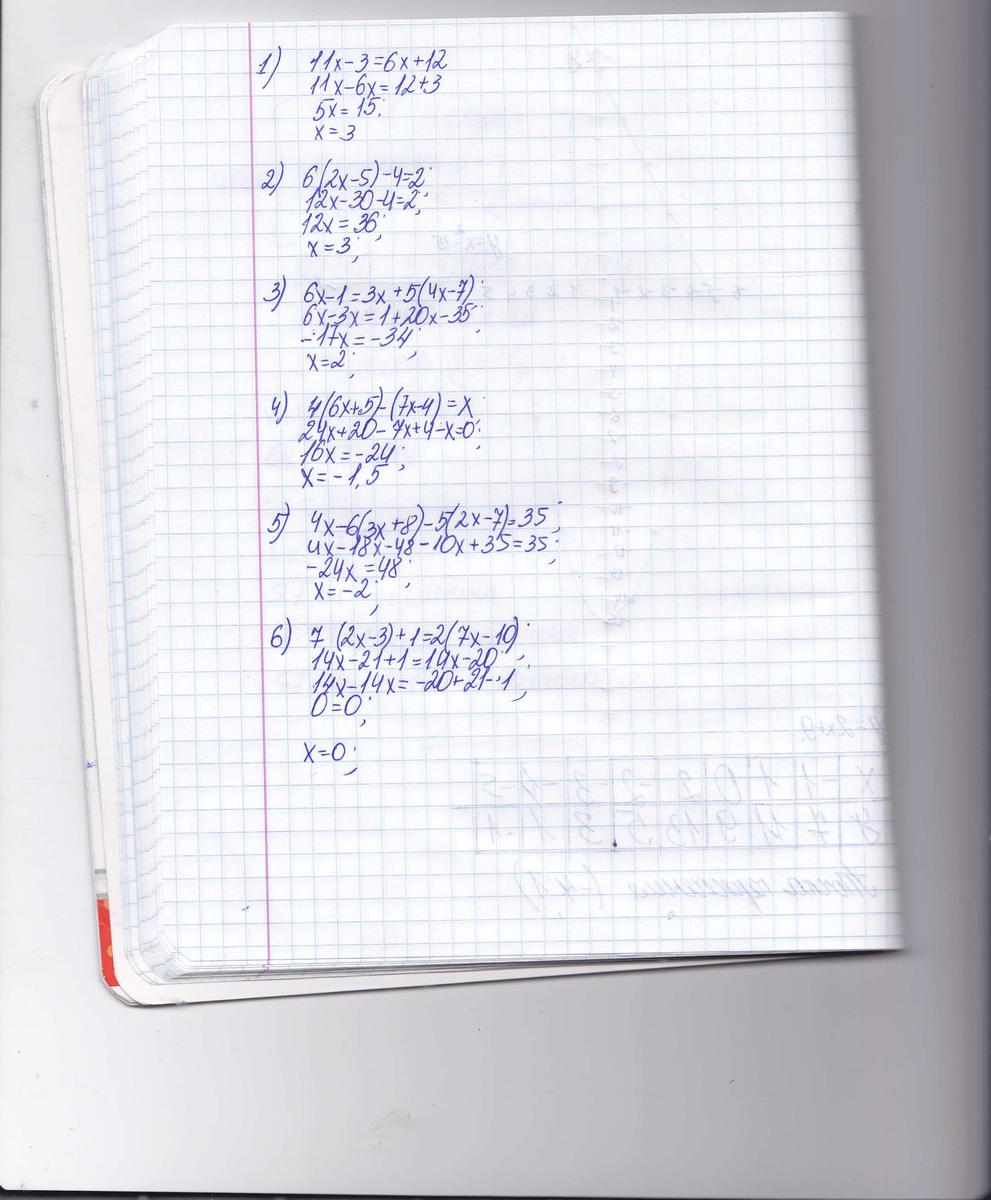 1) 11x-3=6x+12
11x-6x=12+3
5x=15;
x=3
2) 6(2x-5)-4=2;
12x-30-4=2;
12x=36;
x=3;
3) 6x-1=3x+5(4x-7);
6x-3x=1+20x-35;
-17x=-34;
x=2;
4) 4(6x+5)-(7x-4)=x
24x+20-7x+4-x=0;
16x=-24;
x=-1,5
5) 4x-6(3x+8)-5(2x-7)=35;
4x-18x-48-10x+35=35;
-24x=48;
x=-2;
6) 7(2x-3)+1=2(7x-10);
14x-21+1=14x-20;
14x-14x=-20+21-1;
0=0;
x=0;